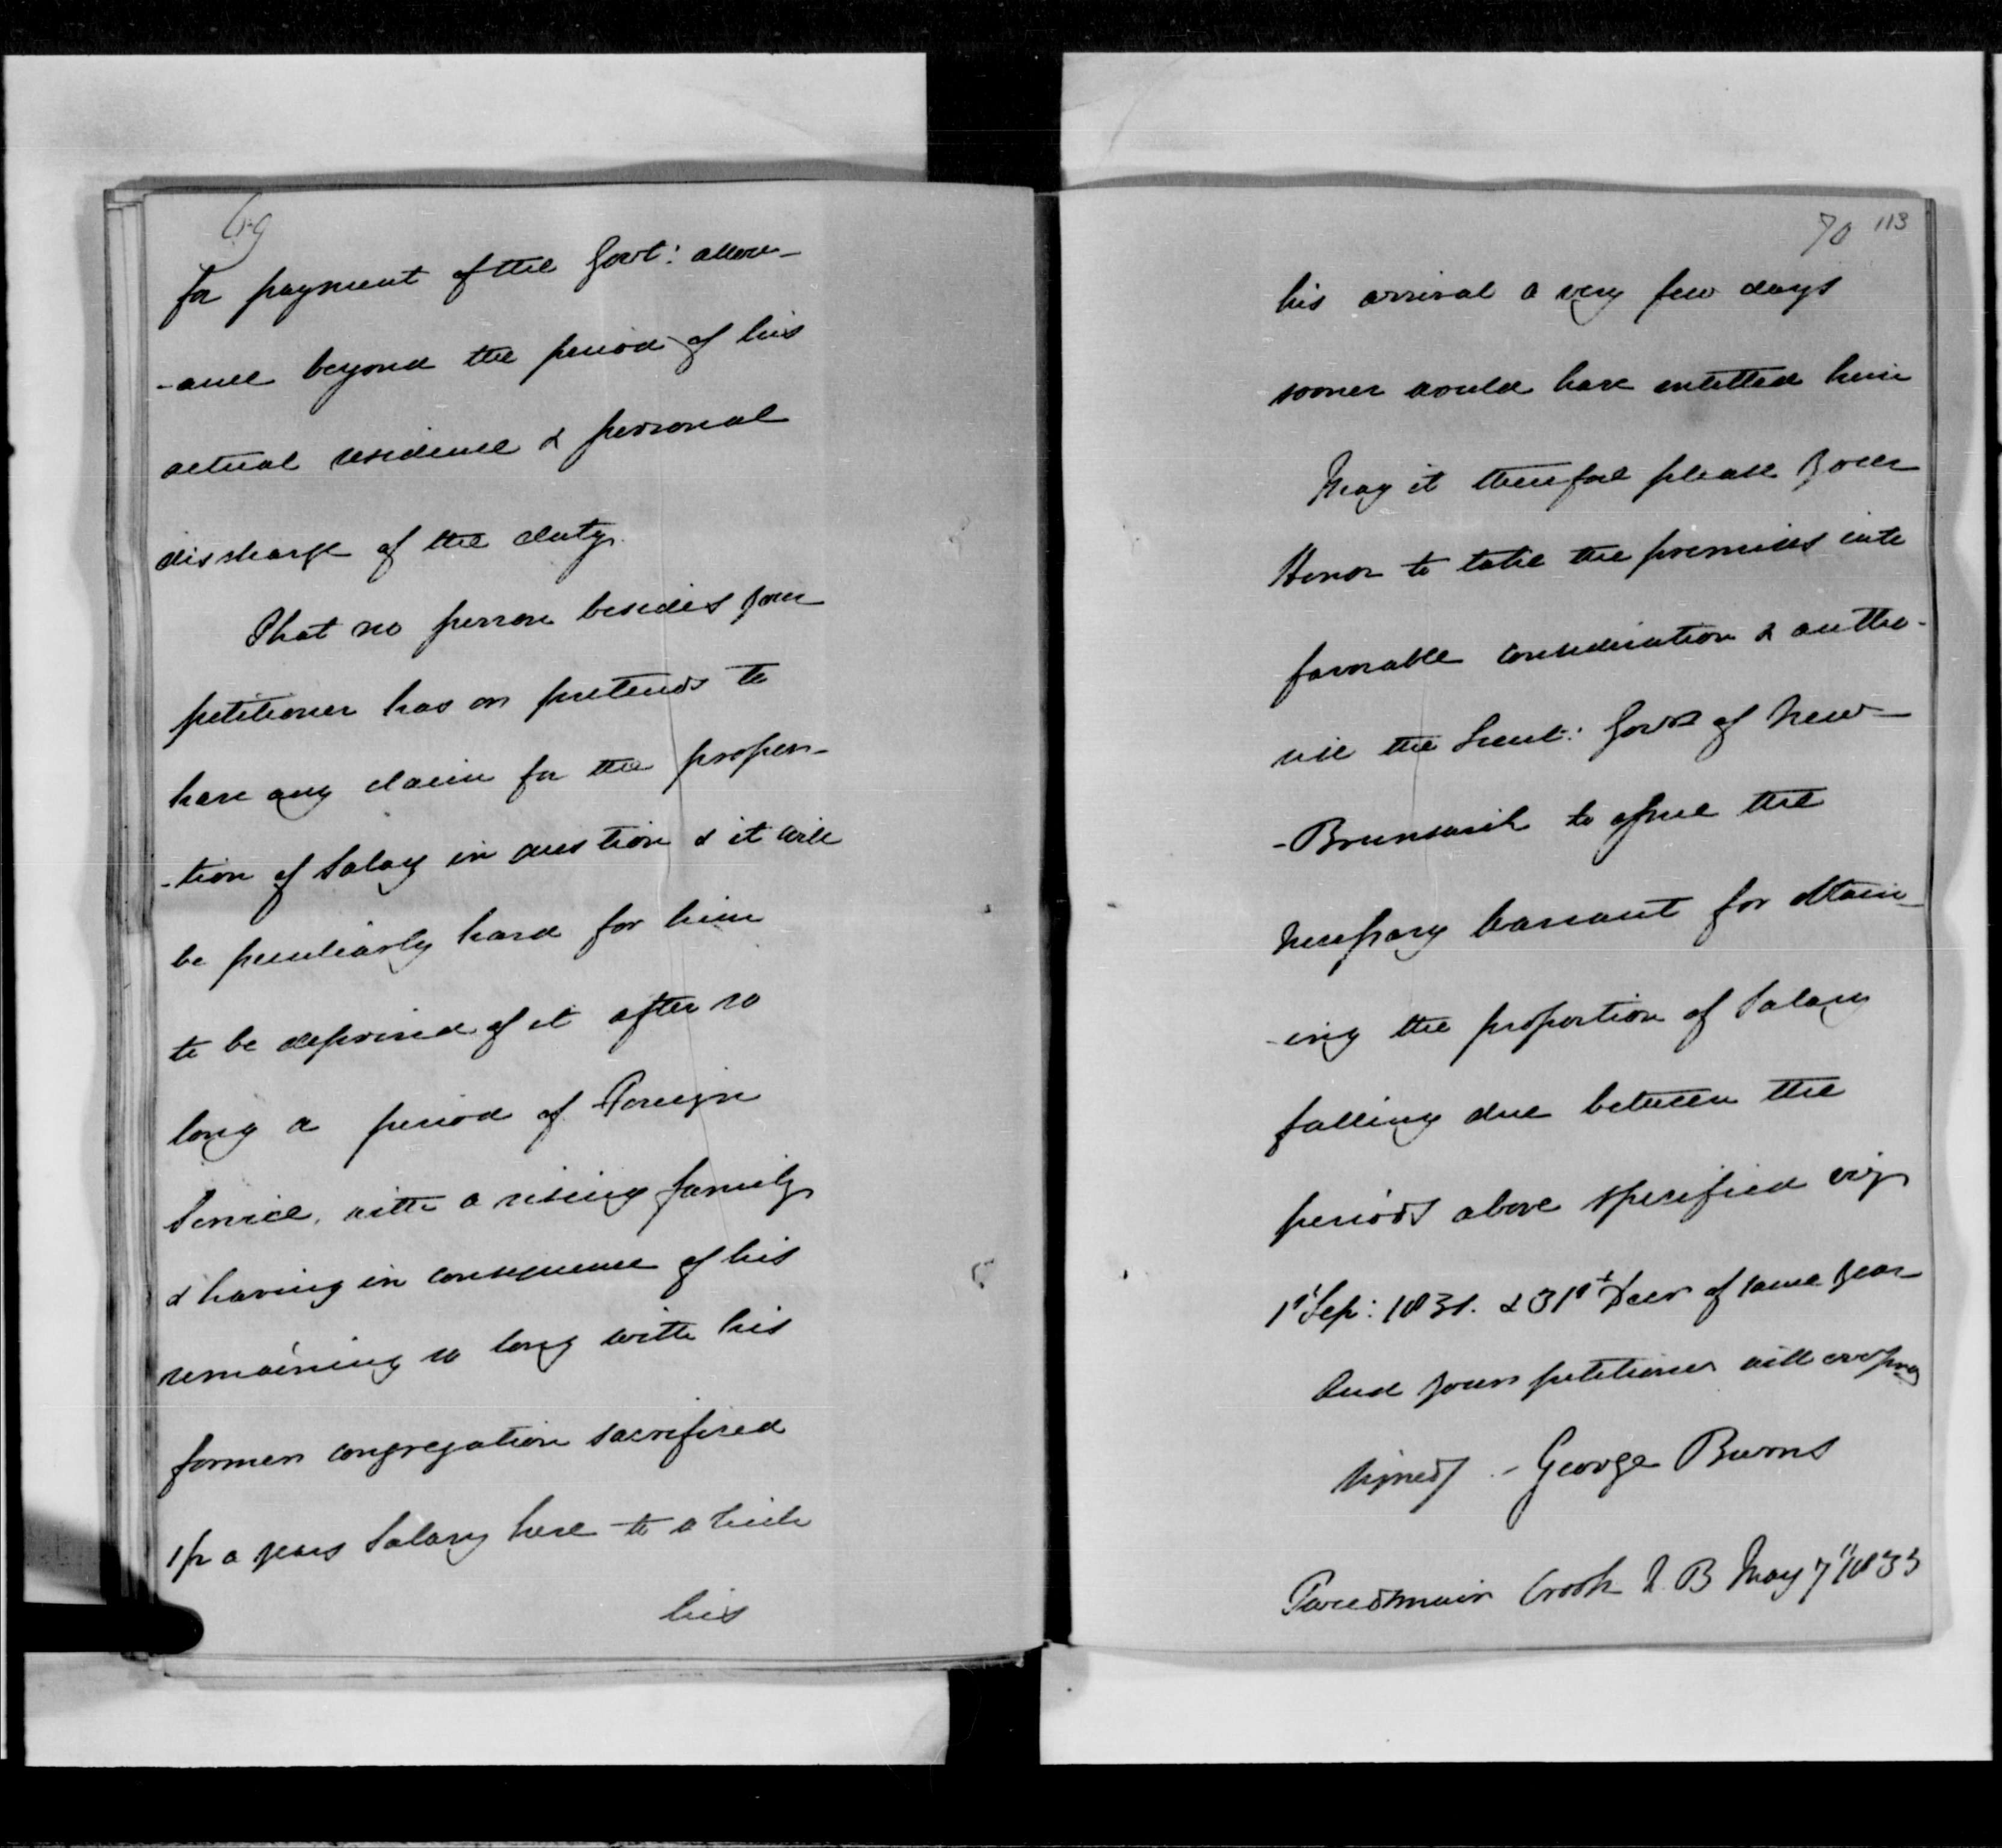 69
for payment of the Govt: allow-
-ance beyond the period of his
actual residence & personal
discharge of the duty.
That no person besides your
petitioner has or pretends to
have any claim for the propor-
-tion of Salary in question & it will
be peculiarly hard for him
to be deprived of it after so
long a period of Foreign
Service, with a rising family
& having in consequence of his
remaining so long with his
former congregation sacrificed
1/2 a years Salary here to which
his
70 113
his arrival a very few days
sooner would have entitled him
May it therefore please your
Honor to take the premises into
favorable consideration & autho-
rise the Lieut: Govr of New-
-Brunswick to issue the
necessary Warrant for obtain-
-ing the proportion of Salary
falling due between the
periods above specified viz
1st Sep: 1831. & 31st Decr of same year
And your petitioner will ever pray
signed/ - George Burns
Brook N. B May 7th 1833